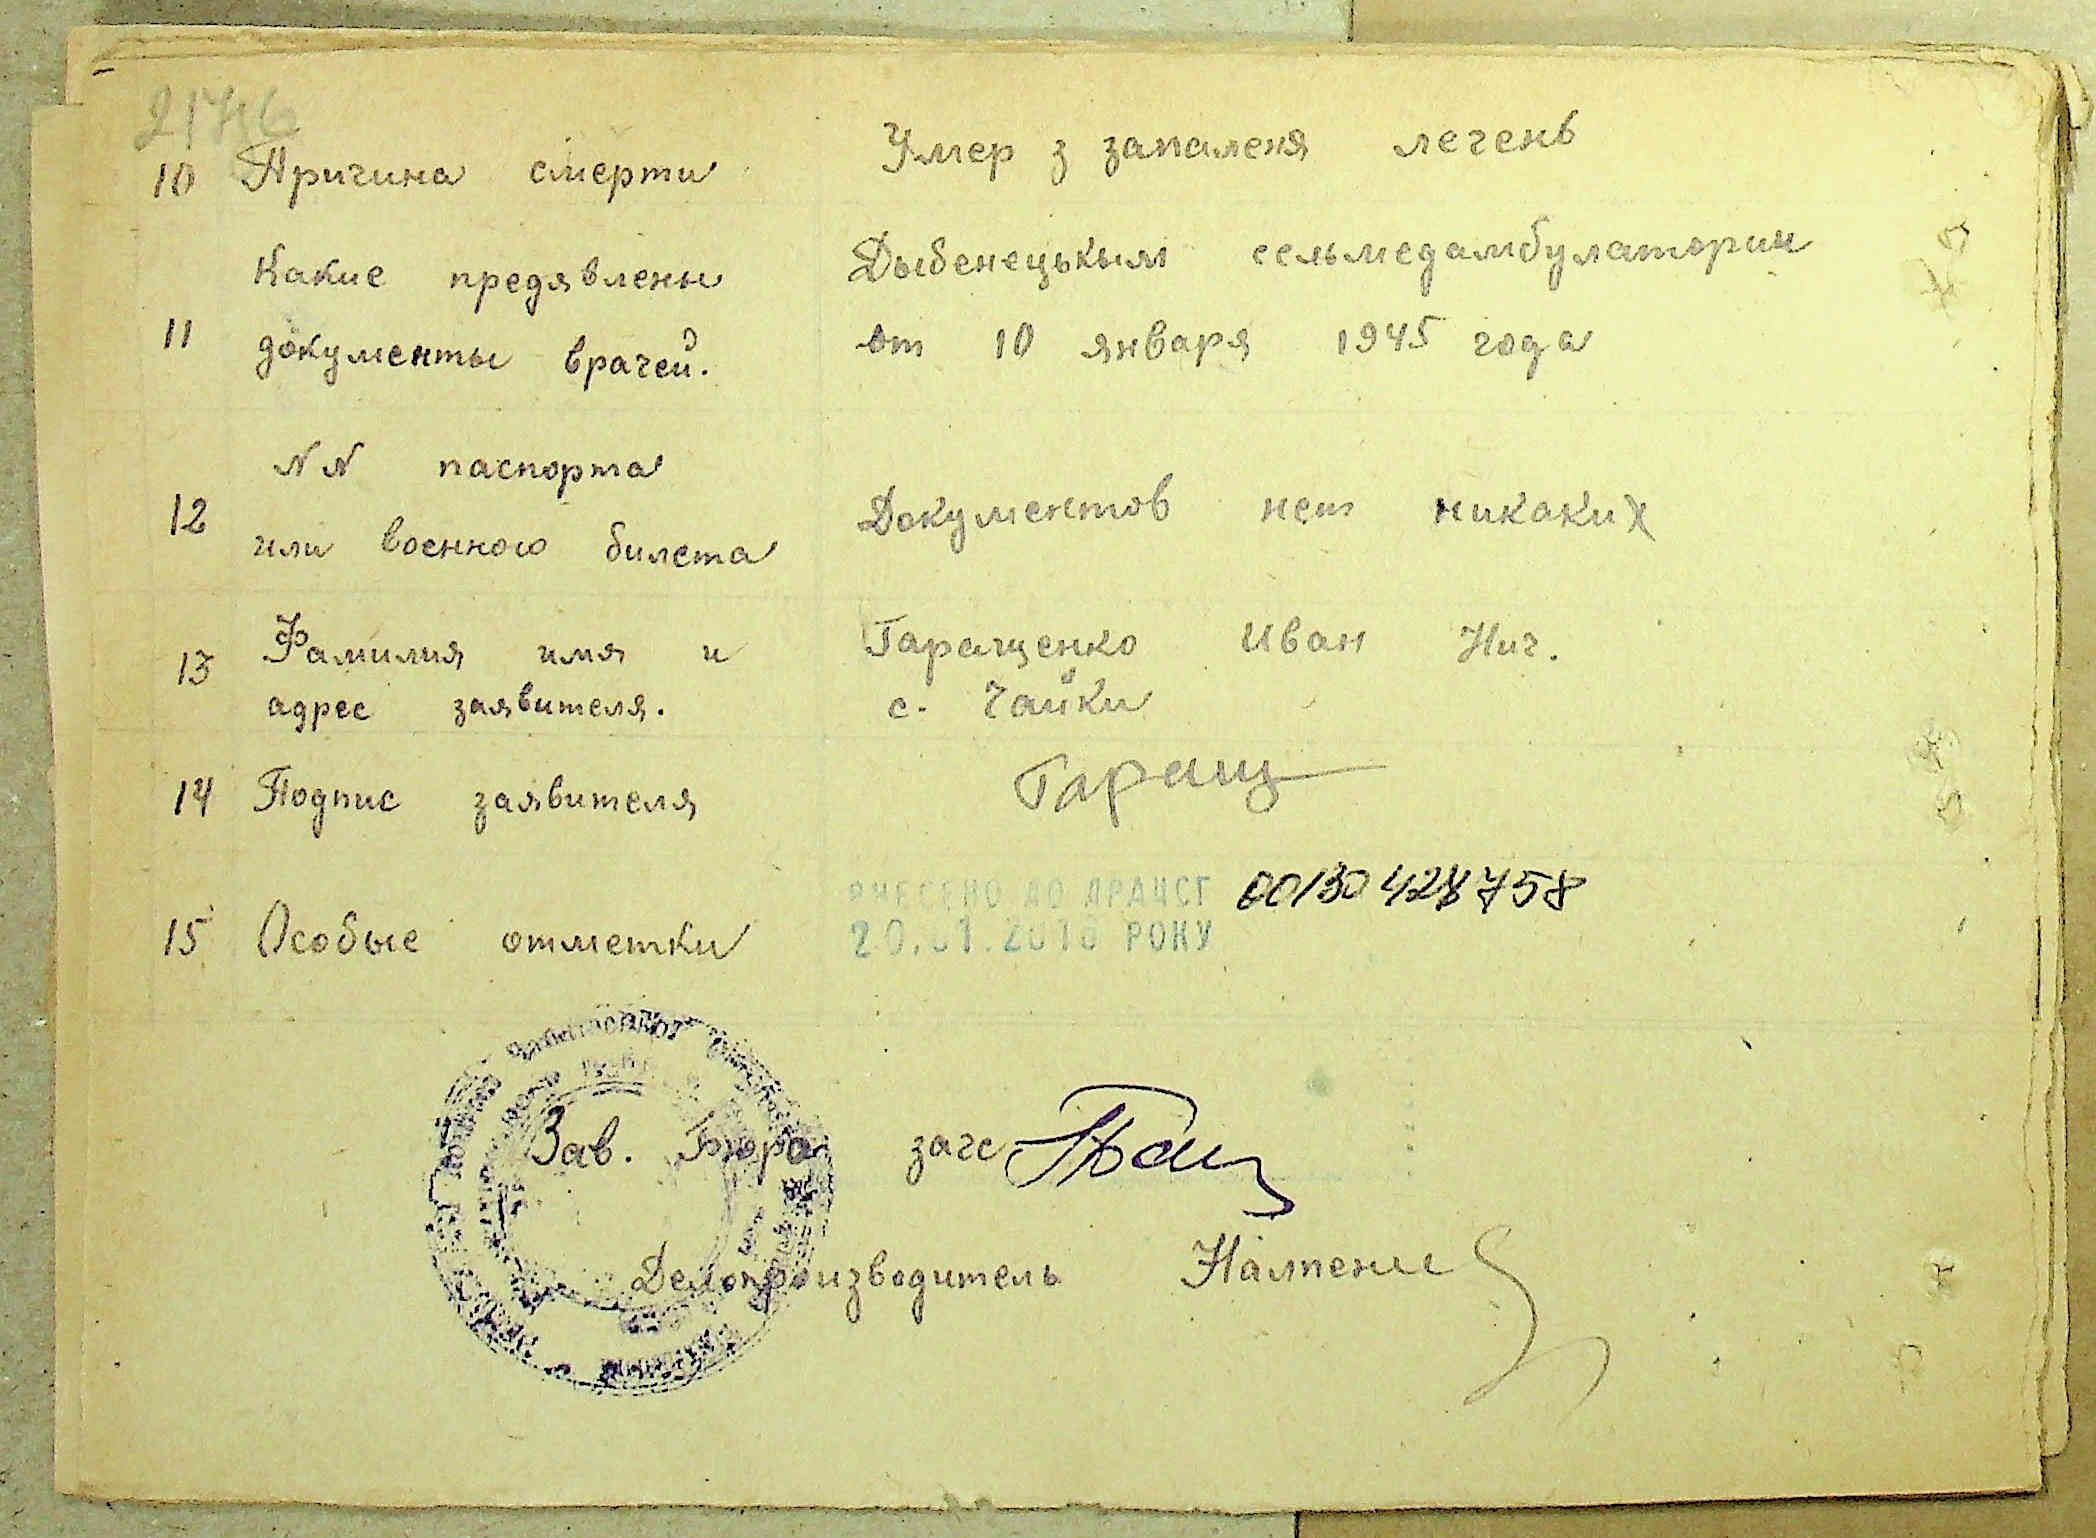 10 Причина смерти Умер з запаленя легень
Какие предявлены Дыбенецькым сельмедамбулатории
11 документы врачей. от 10 января 1945 года
NN паспорта
12 Документов нет никаких
или военного билета
13 Фамилия имя и Гаращенко Иван Нич.
адрес заявителя. с. Чайки
14 Подпис заявителя Гаращ
ВНЕСЕНО ДО ДРАЦСГ 00130428758
15 Особые отметки 20.01.2010 РОКУ
Зав. Бюро загс
Делопроизводитель